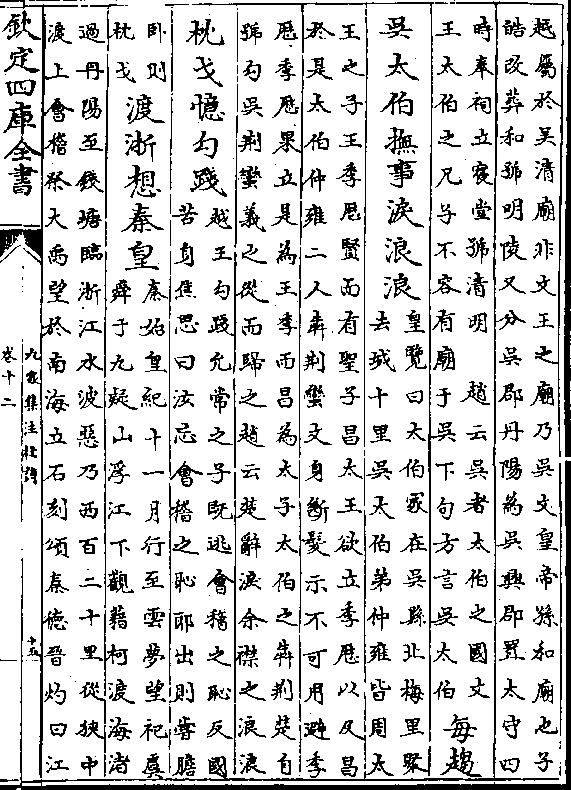 越屬於吳清廟非文王之廟乃吳文皇帝孫和廟也子
皓改葬和號明陵又分吳郡丹陽為吳興郡置太守四
時奉祠立寢堂號清明　趙云吳者太伯之國文
王太伯之兄子不容有廟于吳下句方言吳太伯
每趨
吳太伯撫事淚浪浪
皇覽曰太伯冢在吳縣北梅里聚
去城十里吳太伯弟仲雍皆周太
王之子王季厯賢而有聖子昌太王欲立季厯以及昌
於是太伯仲雍二人犇荆蠻文身斷髮示不可用避季
厯季厯果立是為王季而昌為太子太伯之犇荆楚自
號勾吳荆蠻義之從而歸之趙云楚辭淚余襟之浪浪
枕戈憶勾踐
越王勾踐允常之子既逃會稽之恥反國
苦身焦思曰汝忘會稽之恥耶出則嘗膽
卧則
枕戈
渡浙想秦皇
秦始皇紀十一月行至雲夢望祀虞
舜于九疑山浮江下觀藉柯渡海渚
過丹陽至錢塘臨浙江水波惡乃西百二十里從狹中
渡上會稽祭大禹望於南海立石刻頌秦德晉灼曰江
欽定四庫全書
九家集注杜詩
卷十二
十五